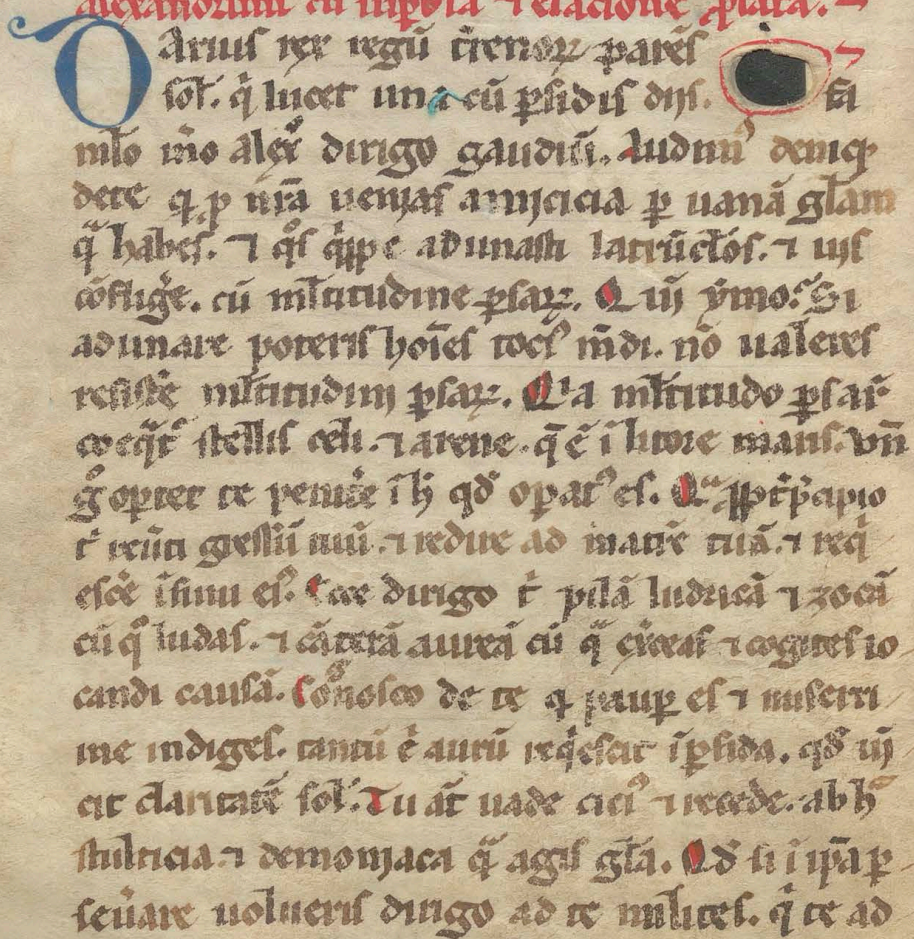 alexandrum cum superbia ⁊ elacione plata.
Darius rex regū t̄renoꝝ parēs
sol̄. q̇ lucet una cū ꝑsidis dijs. fa
ml̄o m̄o alex̄ dirigo gaudiū. Audiuim᷒ deniqꝫ
de te ꝙ ꝓ nr̄a ueniſ amicicia ꝑ uanā gl̄am
qͣ habes. ⁊ qͦs adunasti latrūcl̄os. ⁊ uis
ↄ̄fligͤe. cū ml̄titudine ꝑsaꝝ. Si
adunare poteris hoīes toci᷒ mūdi. nō ualeres
resistͤe ml̄titudini ꝑsaꝝ. Qia ml̄titudo ꝑsaꝝ
coeq̄t᷑ stellis celi. ⁊ arene. q̄ ē ī litore maris. Vn̄
gͦ oportet te penitͤe ī h̄ qd̄ opat᷒ es. Qͣꝓpt̄ p̄cipio
t̄ reūti gressū tuū. ⁊ redire ad matrē tuā. ⁊ reqͥ
escͤe ī sinu ei᷒. Ecce dirigo t̄ pilā ludricā ⁊ zocā
cū qͣ ludas. ⁊ cāterā aureā cū qͣ exͤceas ⁊ cogites io
candi causā. Cognosco de te ꝙ pauꝑ es ⁊ miserri
me indiges. tantū ē aurū reqͥescit ī ꝑsida. qd̄ uī
cit claritatē sol̄. Tu aūt uade citi᷒ ⁊ recede. ab hͣ
stulticia. ⁊ demoniaca qͣ agis gl̄a. Qd̄ si ī ipā ꝑ
seūare uolueris dirigo ad te milites. qͥ te ad